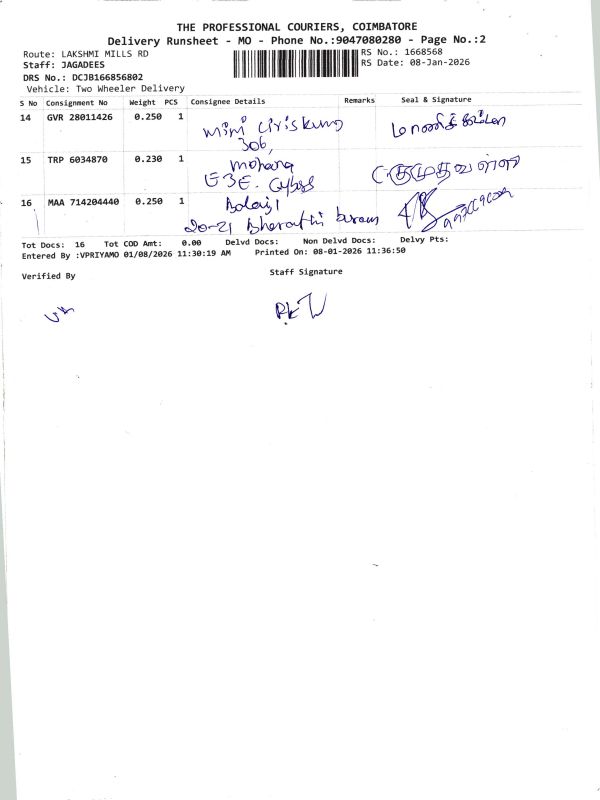 THE PROFESSIONAL COURIERS, COIMBATORE
Delivery Runsheet - MO - Phone No.:9047080280 - Page No.:2
Route: LAKSHMI MILLS RD
RS No.: 1668568
Staff: JAGADEES
RS Date: 08-Jan-2026
DRS No.: DCJB166856802
Vehicle: Two Wheeler Delivery
S No Consignment No Weight PCS Consignee Details Remarks Seal & Signature
14 GVR 28011426 0.250 1
306,
15 TRP 6034870 0.230 1 mohana
16 MAA 714204440 0.250 1 Balaji
20-21 Bharathi
Tot Docs: 16 Tot COD Amt: 0.00 Delvd Docs: Non Delvd Docs: Delvy Pts:
Entered By :VPRIYAMO 01/08/2026 11:30:19 AM Printed On: 08-01-2026 11:36:50
Verified By Staff Signature